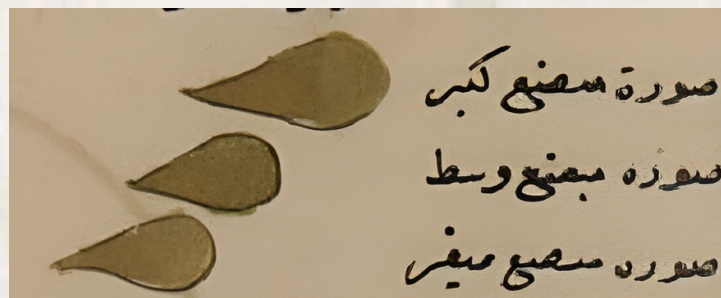 صورة مبضع كبير
صورة مبضع وسط
صورة مبضع صغير